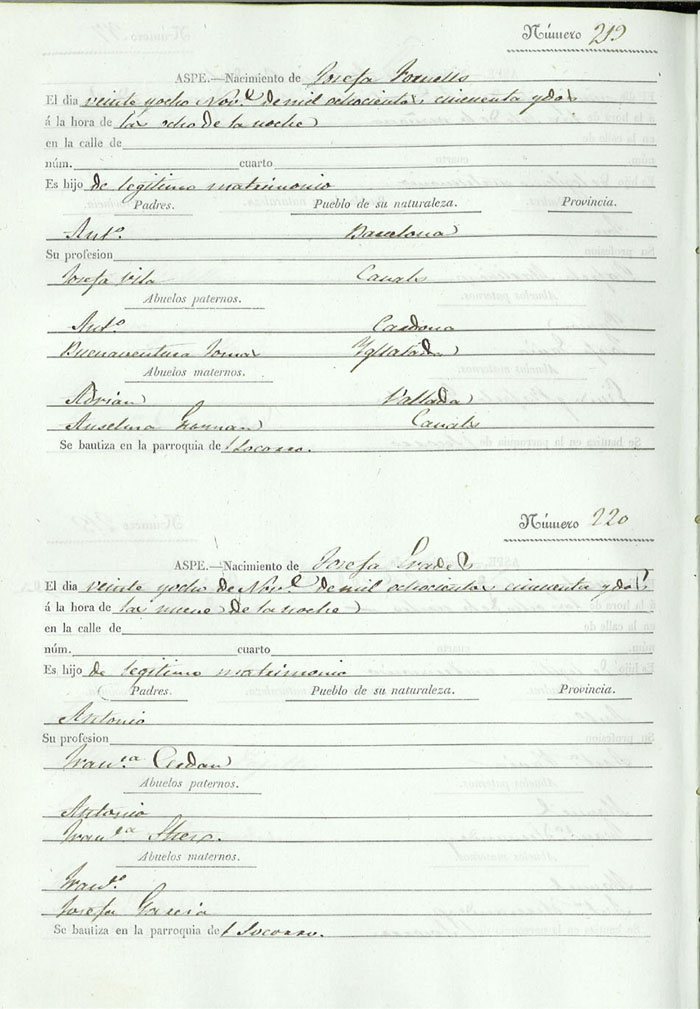 Número 219
ASPE.—Nacimiento de Josefa Tornells
El dia veinte y ocho Nov.e de mil ochocientos cincuenta y dos
á la hora de las ocho de la noche
en la calle de
núm. cuarto
Es hijo de legitimo matrimonio
Padres. Pueblo de su naturaleza. Provincia.
Ant.o Barcelona
Su profesion
Josefa Vila Canals
Abuelos paternos.
Ant.o Cardona
Buenaventura Tomas Ygualada
Abuelos maternos.
Adrian Vallada
Anselma Canals
Se bautiza en la parroquia de Socorro.
Número 220
ASPE.—Nacimiento de Josefa
El dia veinte y ocho de Nov.e de mil ochocientos cincuenta y dos
á la hora de las nueve de la noche
en la calle de
núm. cuarto
Es hijo de legitimo matrimonio
Padres. Pueblo de su naturaleza. Provincia.
Antonio
Su profesion
Fran.ca Cerdan
Abuelos paternos.
Antonio
Fran.ca
Abuelos maternos.
Fran.co
Josefa Garcia
Se bautiza en la parroquia de Socorro.